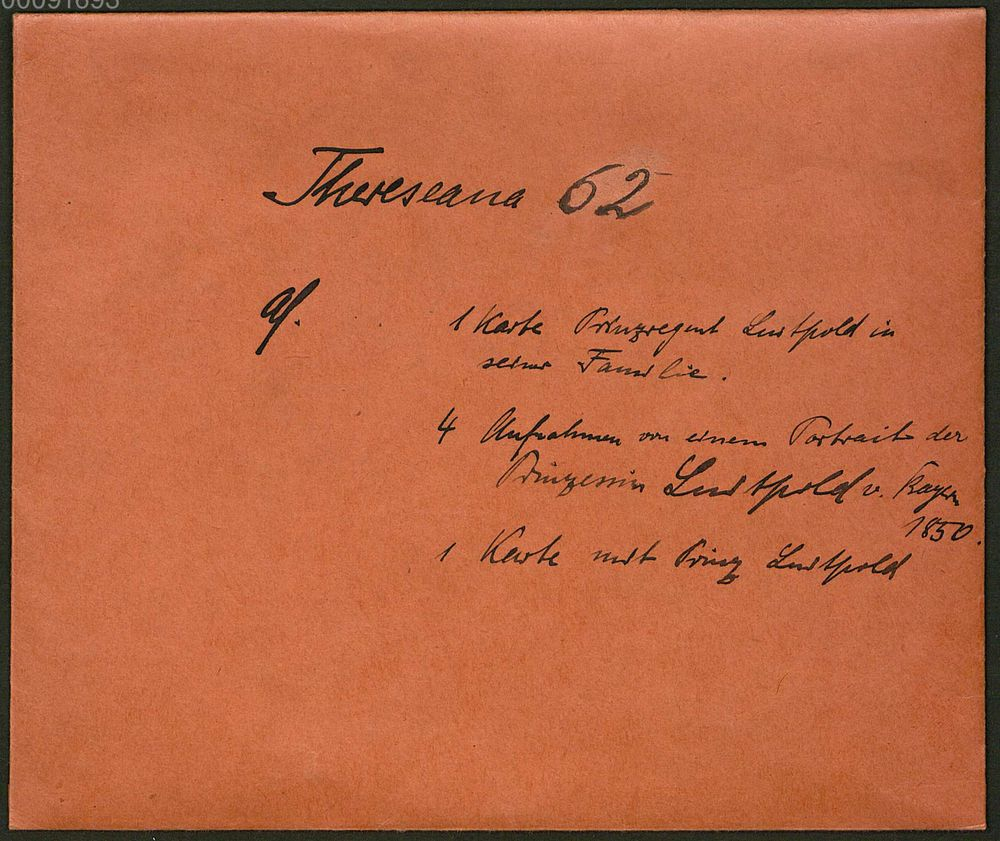 00091693
Thereseana 62
a/.
1 Karte Prinzregent Luitpold in
seiner Familie.
4 Aufnahmen von einem Portrait der
Prinzessin Luitpold v. Bayern
1850.
1 Karte mit Prinz Luitpold